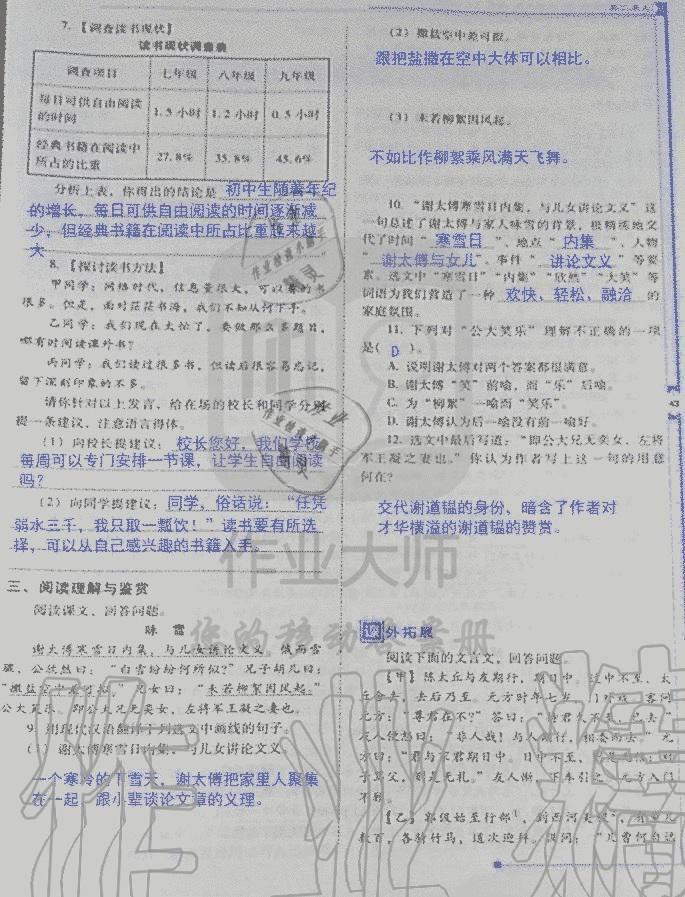 7. 【调查读书现状】
读书现状调查表
调查项目 七年级 八年级 九年级
每日可供自由阅读的时间 1.5 小时 1.2 小时 0.5 小时
经典书籍在阅读中所占的比重 27.8% 35.8% 45.6%
分析上表，你得出的结论是 初中生随着年纪
的增长，每日可供自由阅读的时间逐渐减
少，但经典书籍在阅读中所占比重越来越
大
8. 【探讨读书方法】
甲同学：网络时代，信息量很大，可以看的书
很多。但是，面对茫茫书海，我们不知从何下手。
乙同学：我们现在太忙了，要做那么多题目，
哪有时间阅读课外书？
丙同学：我们读过很多书，但读后很容易忘记，
留下深刻印象的不多。
请你针对以上发言，给在场的校长和同学分别
提一条建议，注意语言得体。
（1）向校长提建议： 校长您好，我们学校
每周可以专门安排一节课，让学生自由阅读
吗？
（2）向同学提建议： 同学，俗话说：“任凭
弱水三千，我只取一瓢饮！”读书要有所选
择，可以从自己感兴趣的书籍入手。
三、阅读理解与鉴赏
阅读课文，回答问题。
咏 雪
谢太傅寒雪日内集，与儿女讲论文义。俄而雪
骤，公欣然曰：“白雪纷纷何所似？”兄子胡儿曰：
“撒盐空中差可拟。”兄女曰：“未若柳絮因风起。”
公大笑乐。即公大兄无奕女，左将军王凝之妻也。
9. 用现代汉语翻译下列选文中画线的句子。
（1）谢太傅寒雪日内集，与儿女讲论文义。
一个寒冷的下雪天，谢太傅把家里人聚集
在一起，跟小辈谈论文章的义理。
（2）撒盐空中差可拟。
跟把盐撒在空中大体可以相比。
（3）未若柳絮因风起。
不如比作柳絮乘风满天飞舞。
10. “谢太傅寒雪日内集，与儿女讲论文义”这
一句总述了谢太傅与家人咏雪的背景，极精练地交
代了时间“ 寒雪日 ”、地点“ 内集 ”、人物
“ 谢太傅与女儿 ”、事件“ 讲论文义 ”等要
素。选文中“寒雪日”“内集”“欣然”“大笑”等
词语为我们营造了一种 欢快、轻松、融洽 的
家庭氛围。
11. 下列对“公大笑乐”理解不正确的一项
是（ D ）。
A. 说明谢太傅对两个答案都很满意。
B. 谢太傅“笑”前喻，而“乐”后喻。
C. 为“柳絮”一喻而“笑乐”。
D. 谢太傅认为后一喻没有前一喻好。
12. 选文中最后写道：“即公大兄无奕女，左将
军王凝之妻也。”你认为作者写上这一句的用意
何在？
交代谢道韫的身份、暗含了作者对
才华横溢的谢道韫的赞赏。
课外拓展
阅读下面的文言文，回答问题。
【甲】陈太丘与友期行，期日中。过中不至，太
丘舍去，去后乃至。元方时年七岁，门外戏。客问
元方：“尊君在不？”答曰：“待君久不至，已去。”
友人便怒曰：“非人哉！与人期行，相委而去。”元
方曰：“君与家君期日中。日中不至，则是无信；对
子骂父，则是无礼。”友人惭，下车引之。元方入门
不顾。
【乙】郭伋始至行部，到西河美稷，有童儿
数百，各骑竹马，道次迎拜。伋问：“儿曹何自远
43
作业大师
您的移动作业册
作业精